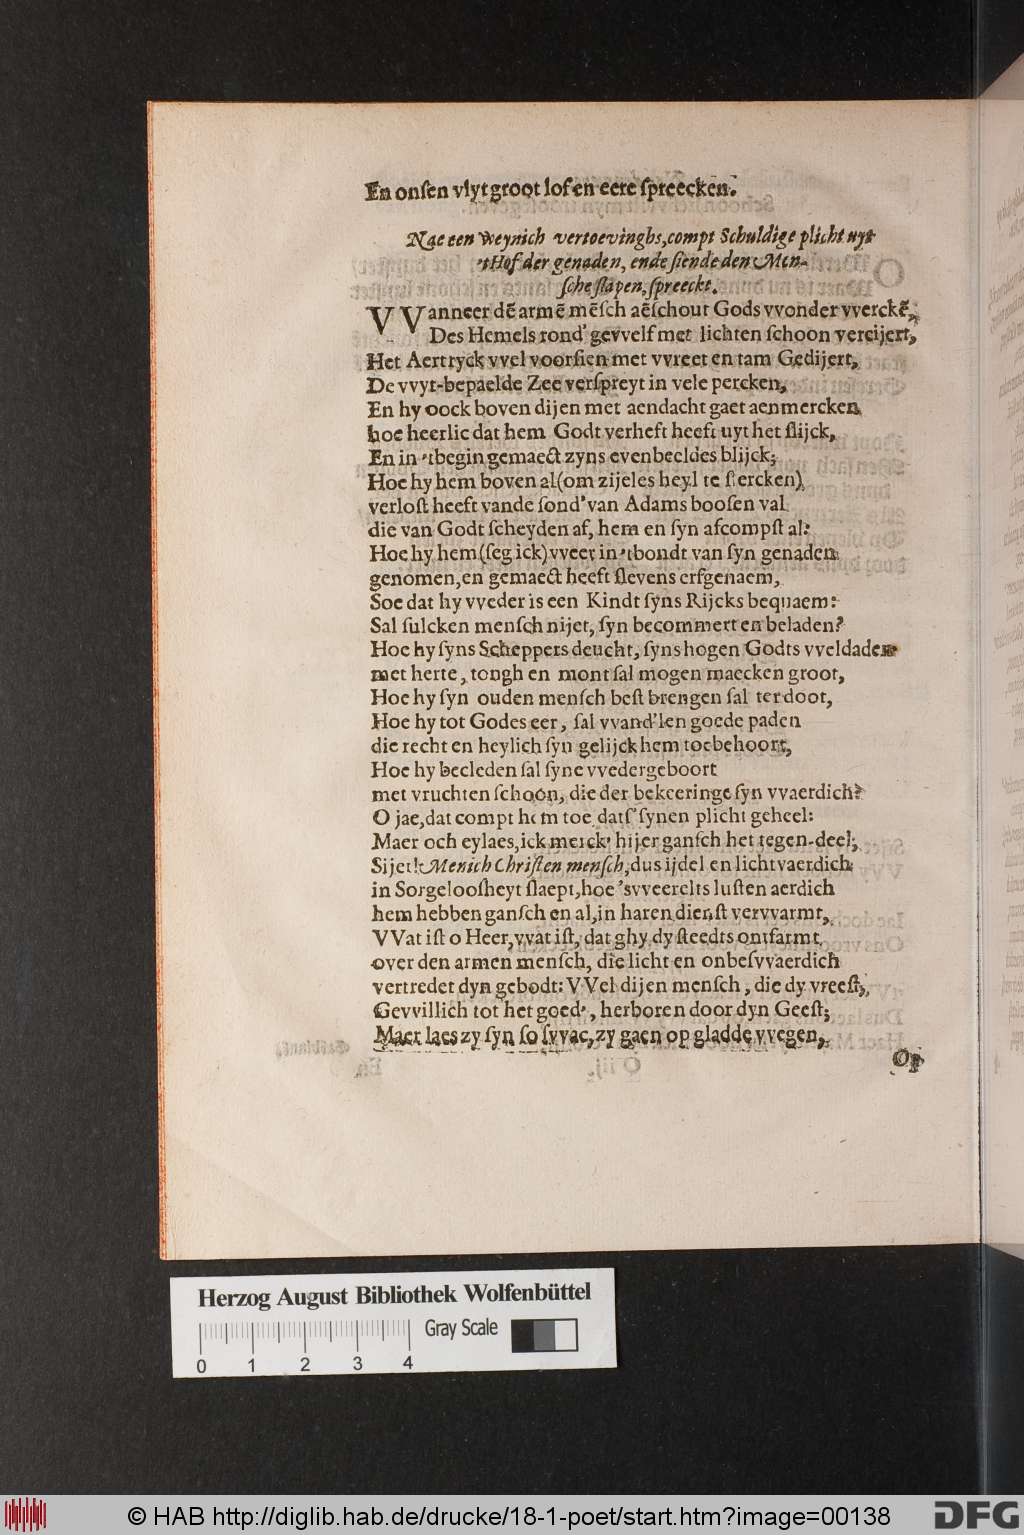 En onſen vlyt groot lof en eere ſpreecken.
Nae een weynich vertoevinghs, compt Schuldige plicht uyt
'tHof der genaden, ende ſiende den Men-
ſche ſlapen, ſpreeckt.
VVanneer dē armē mēſch aēſchout Gods vvonder vverckē,
Des Hemels rond' gevvelf met lichten ſchoon vereijert,
Het Aertryck vvel voorſien met vvreet en tam Gedijert,
De vvyt-bepaelde Zee verſpreyt in vele percken,
En hy oock boven dijen met aendacht gaet aenmercken,
hoe heerlic dat hem Godt verheft heeft uyt het ſlijck,
En in 'tbegin gemaect zyns evenbeeldes blijck;
Hoe hy hem boven al (om zijeles heyl te ſtercken)
verloſt heeft vande ſond' van Adams booſen val
die van Godt ſcheyden af, hem en ſyn afcompſt al:
Hoe hy hem (ſeg ick) vveer in 'tbondt van ſyn genaden
genomen, en gemaect heeft ſlevens erfgenaem,
Soe dat hy vveder is een Kindt ſyns Rijcks bequaem:
Sal ſulcken menſch nijet, ſyn becommert en beladen?
Hoe hy ſyns Scheppers deucht, ſyns hogen Godts vveldaden
met herte, tongh en mont ſal mogen maecken groot,
Hoe hy ſyn ouden menſch beſt brengen ſal ter doot,
Hoe hy tot Godes eer, ſal vvand'len goede paden
die recht en heylich ſyn gelijck hem toebehoort,
Hoe hy beeleden ſal ſyne vvedergeboort
met vruchten ſchoon, die der bekeeringe ſyn vvaerdich?
O jae, dat compt hem toe, datſ' ſynen plicht geheel:
Maer och eylaes, ick merck' hijer ganſch het tegen-deel;
Sijet! Menich Chriſten menſch, dus ijdel en lichtvaerdich
in Sorgelooſheyt ſlaept, hoe 'svveerelts luſten aerdich
hem hebben ganſch en al, in haren dienſt vervvarmt,
VVat iſt o Heer, vvat iſt, dat ghy dy ſteedts ontfarmt
over den armen menſch, die licht en onbeſvvaerdich
vertredet dyn gebodt: VVel dijen menſch, die dy vreeſt,
Gevvillich tot het goed', herboren door dyn Geeſt;
Maer laes zy ſyn ſo ſvvac, zy gaen op gladde vvegen,
Op
Herzog August Bibliothek Wolfenbüttel
Gray Scale
0 1 2 3 4
© HAB http://diglib.hab.de/drucke/18-1-poet/start.htm?image=00138
DFG